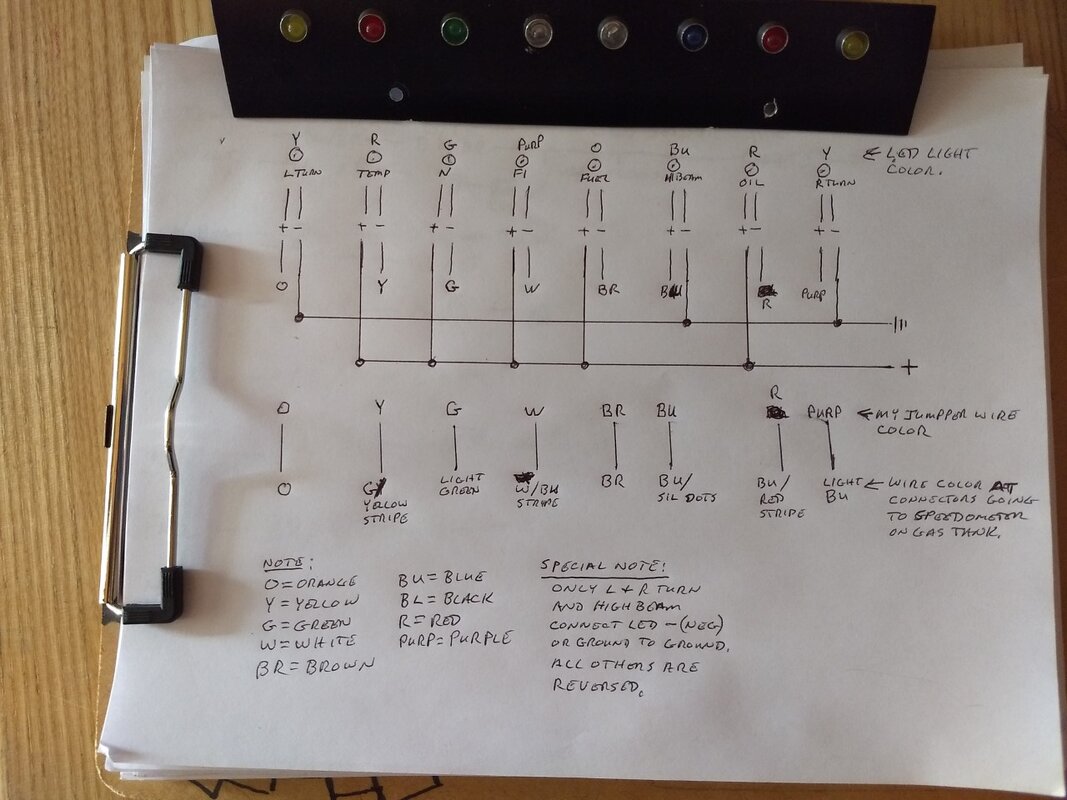 Y R G PURP O BU R Y ← LED LIGHT
COLOR.
L TURN TEMP N FI FUEL HI BEAM OIL R TURN
+ - + - + - + - + - + - + - + -
O Y G W BR BU R PURP
+
R
O Y G W BR BU PURP ← MY JUMPPER WIRE
COLOR
O G/ LIGHT W/BU BR BU/ BU/ LIGHT ← WIRE COLOR AT
YELLOW GREEN STRIPE SIL DOTS RED BU CONNECTORS GOING
STRIPE STRIPE TO SPEEDOMETER
ON GAS TANK.
NOTE:
O = ORANGE
Y = YELLOW
G = GREEN
W = WHITE
BR = BROWN
BU = BLUE
BL = BLACK
R = RED
PURP = PURPLE
SPECIAL NOTE:
ONLY L + R TURN
AND HIGH BEAM
CONNECT LED - (NEG)
OR GROUND TO GROUND.
ALL OTHERS ARE
REVERSED.